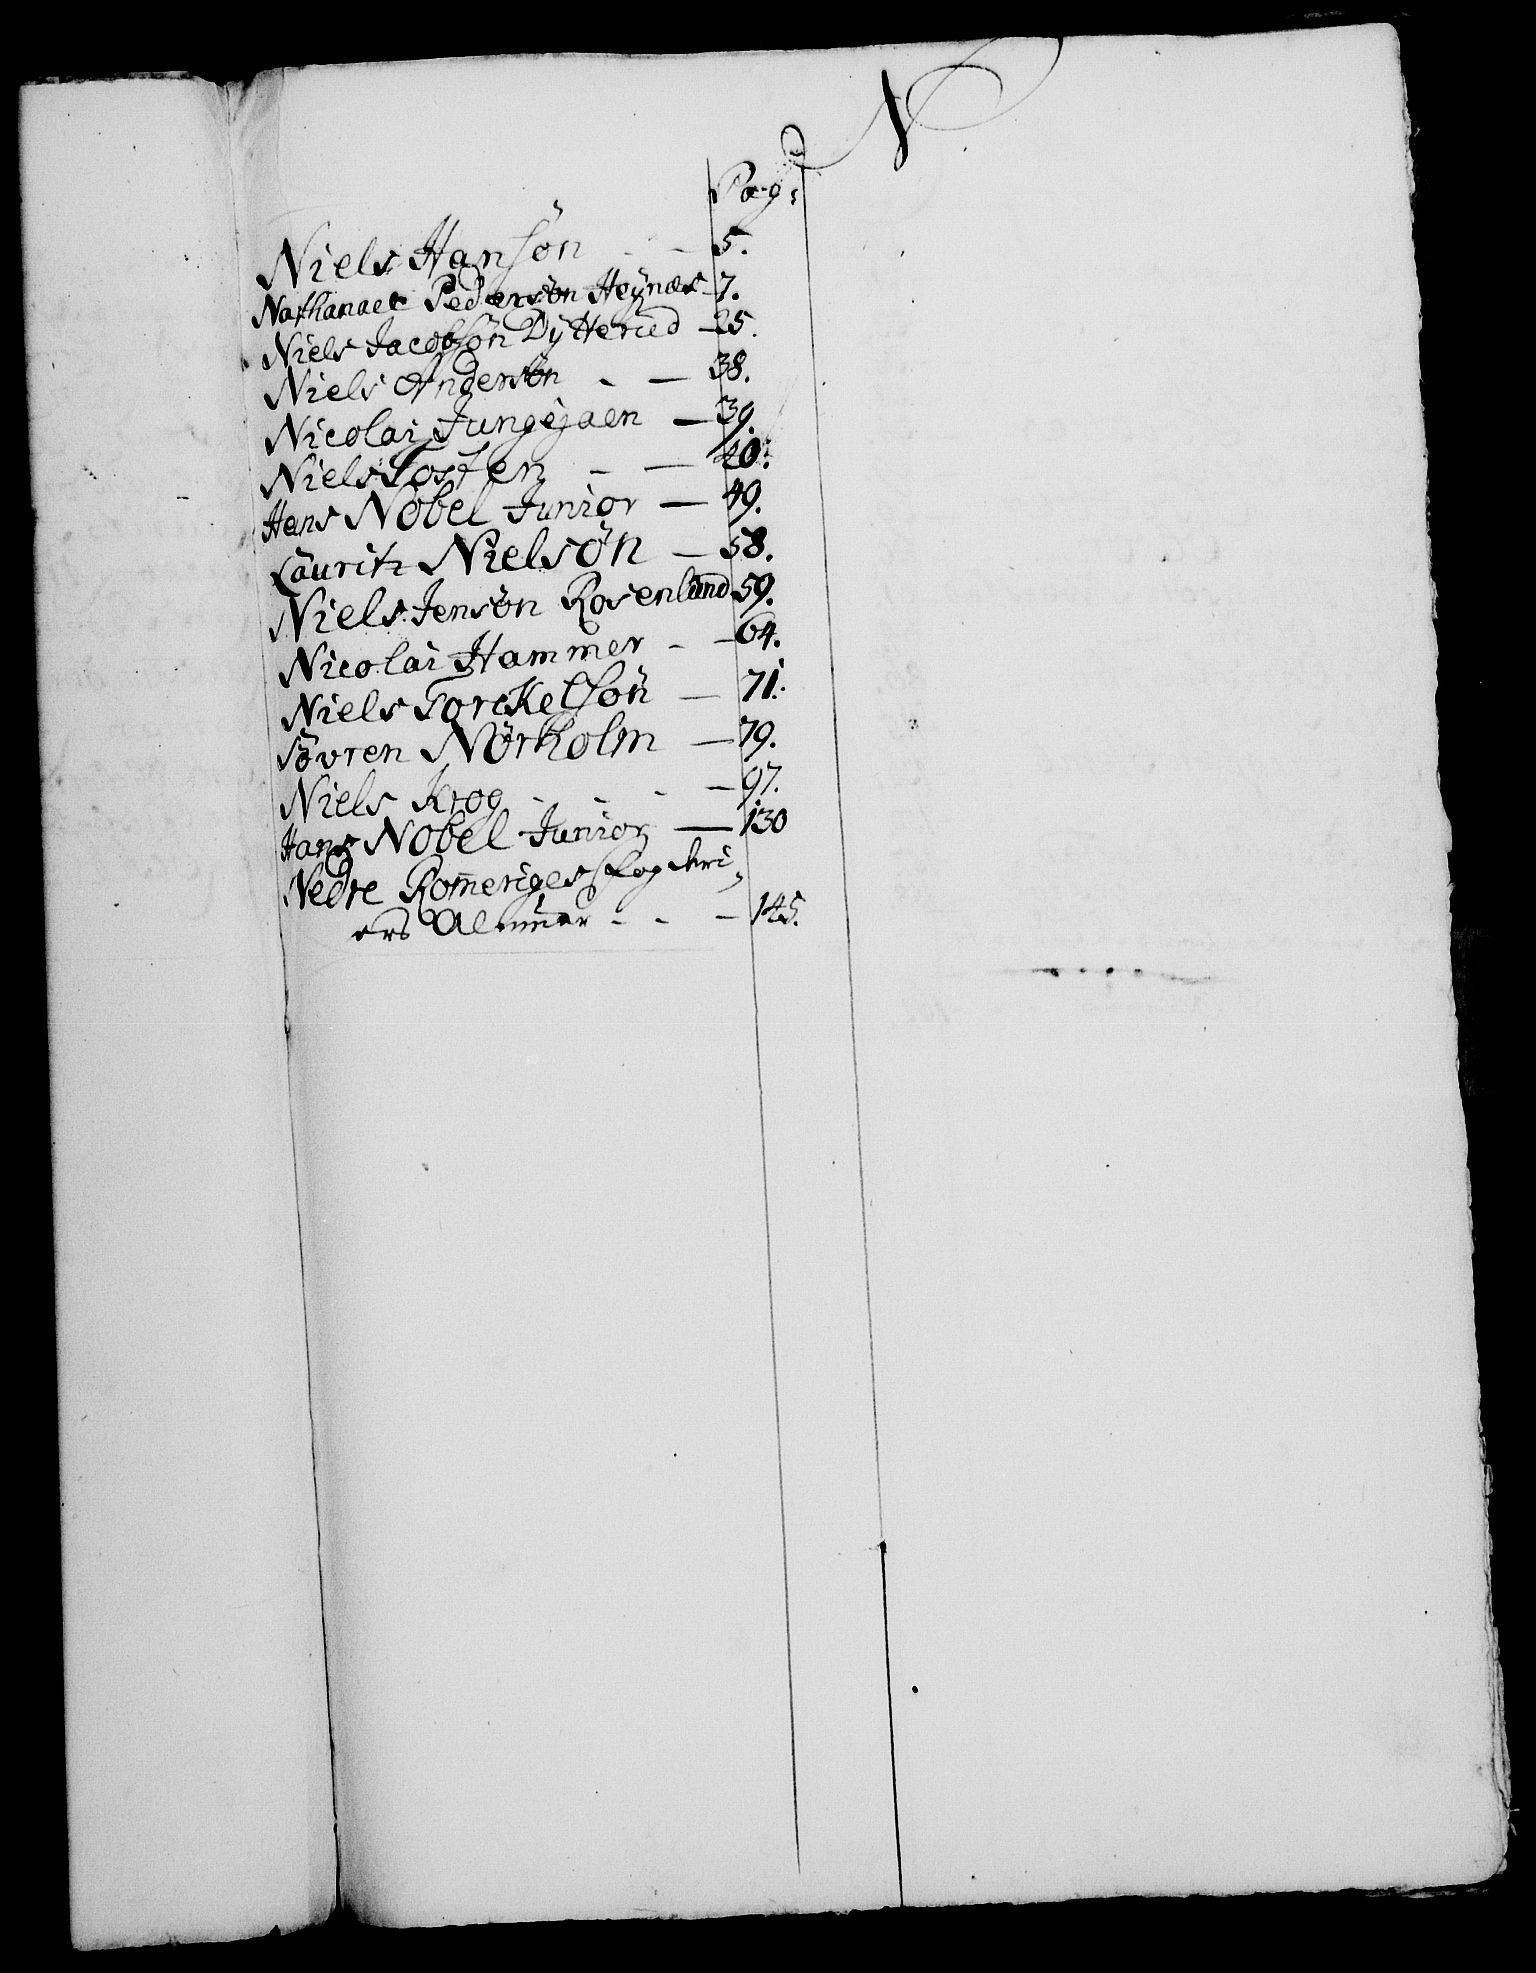 N
Pag:
Niels Hansön - - 5.
Nathanael Pedersön Heÿnæs - 7.
Niels Jacobsön Dÿtterud - 25.
Niels Andersön - - 38.
Nicolai Jungejaen - 39.
Niels Tosten - - 40.
Hans Nobel Junior - 49.
Lauritz Nielsön - 58.
Niels Jensön Rosenlund 59.
Nicolai Hammer - - 64.
Niels Torckelsön - 71.
Sövren Nörholm - 79.
Niels Krog - - - - 97.
Hans Nobel Junior - 130
Nedre Romeriges
ers Almuer - - - 145.